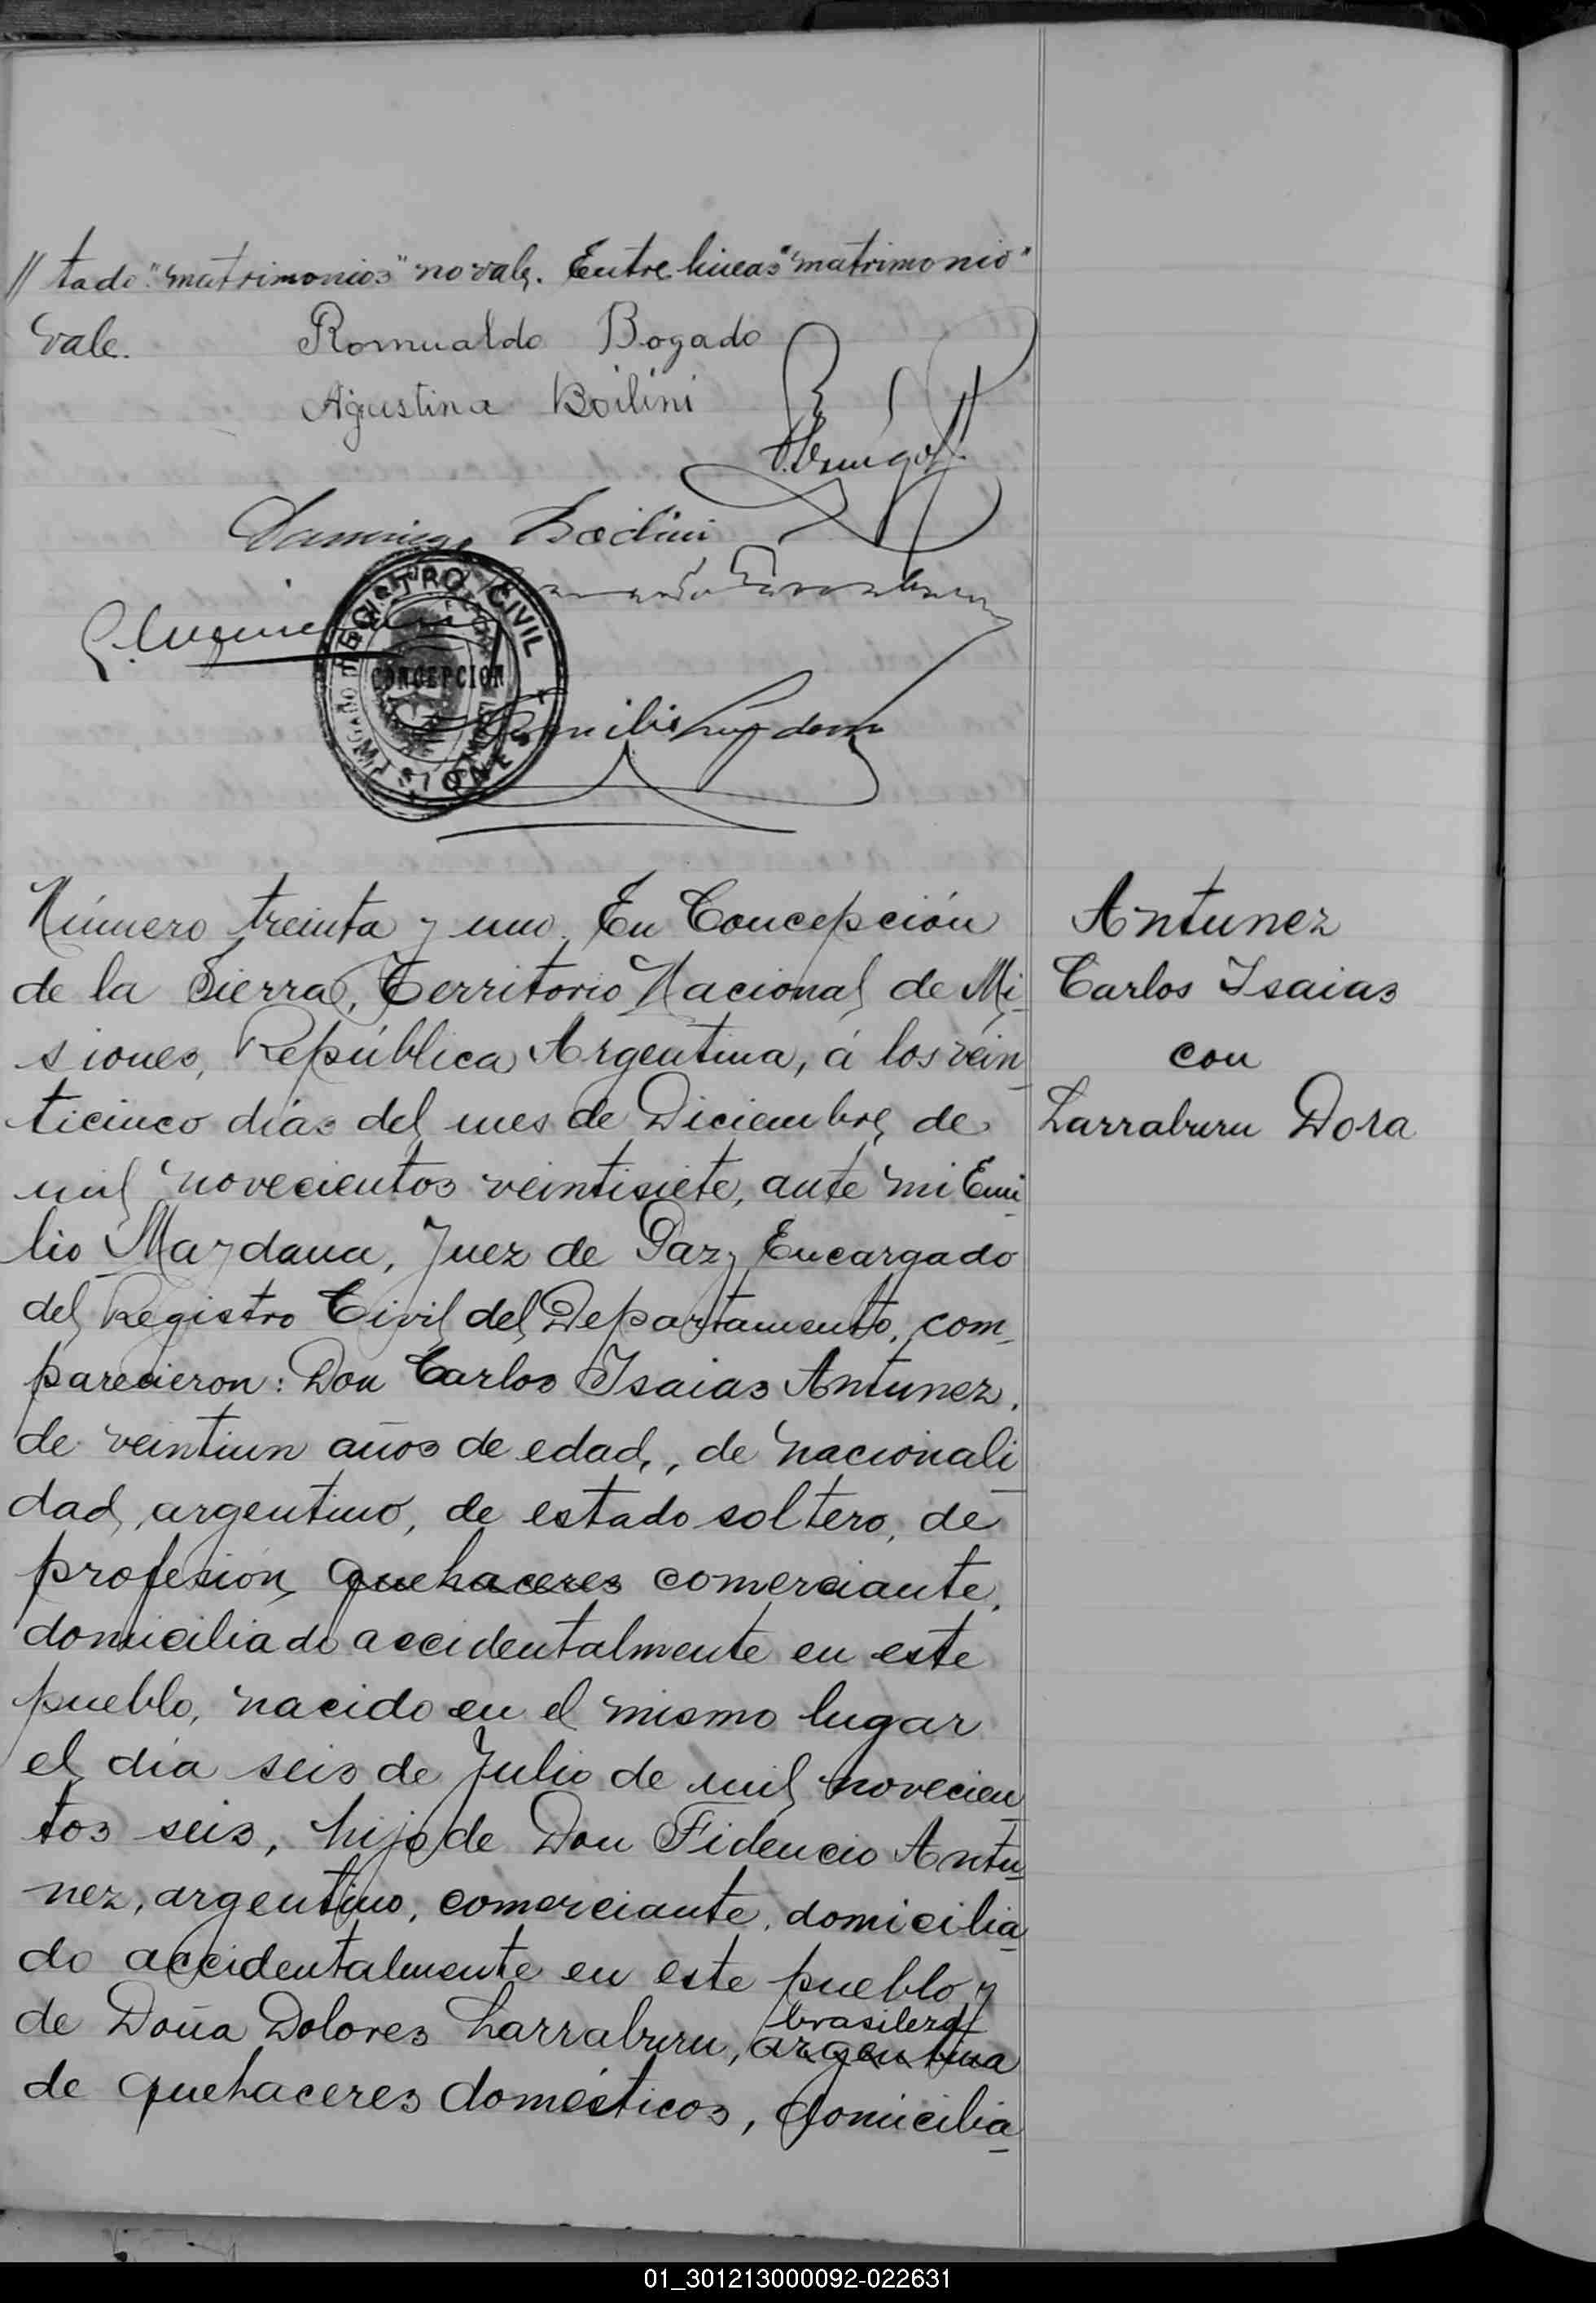 // tado "matrimonios" no vale. Entre lineas "matrimonio"
vale. Romualdo Bogado
Agustina Boilini
Domingo Boilini
REGISTRO CIVIL
CONCEPCION
Emilio Maydana
Número treinta y uno. En Concepción
de la Sierra, Territorio Nacional de Mi-
siones, República Argentina, á los vein-
ticinco dias del mes de Diciembre de
mil novecientos veintisiete, ante mi Emi-
lio Maydana, Juez de Paz y Encargado
del Registro Civil del Departamento, com-
parecieron: Don Carlos Isaias Antunez,
de veintiun años de edad, de nacionali-
dad argentino, de estado soltero, de
profesión quehaceres comerciante,
domiciliado accidentalmente en este
pueblo, nacido en el mismo lugar
el dia seis de Julio de mil novecien-
tos seis, hijo de Don Fidencio Antu-
nez, argentino, comerciante, domicilia-
do accidentalmente en este pueblo y
de Doña Dolores Larraburu, argentina brasilera
de quehaceres domésticos, domicilia-
Antunez
Carlos Isaias
con
Larraburu Dora
01_301213000092-022631